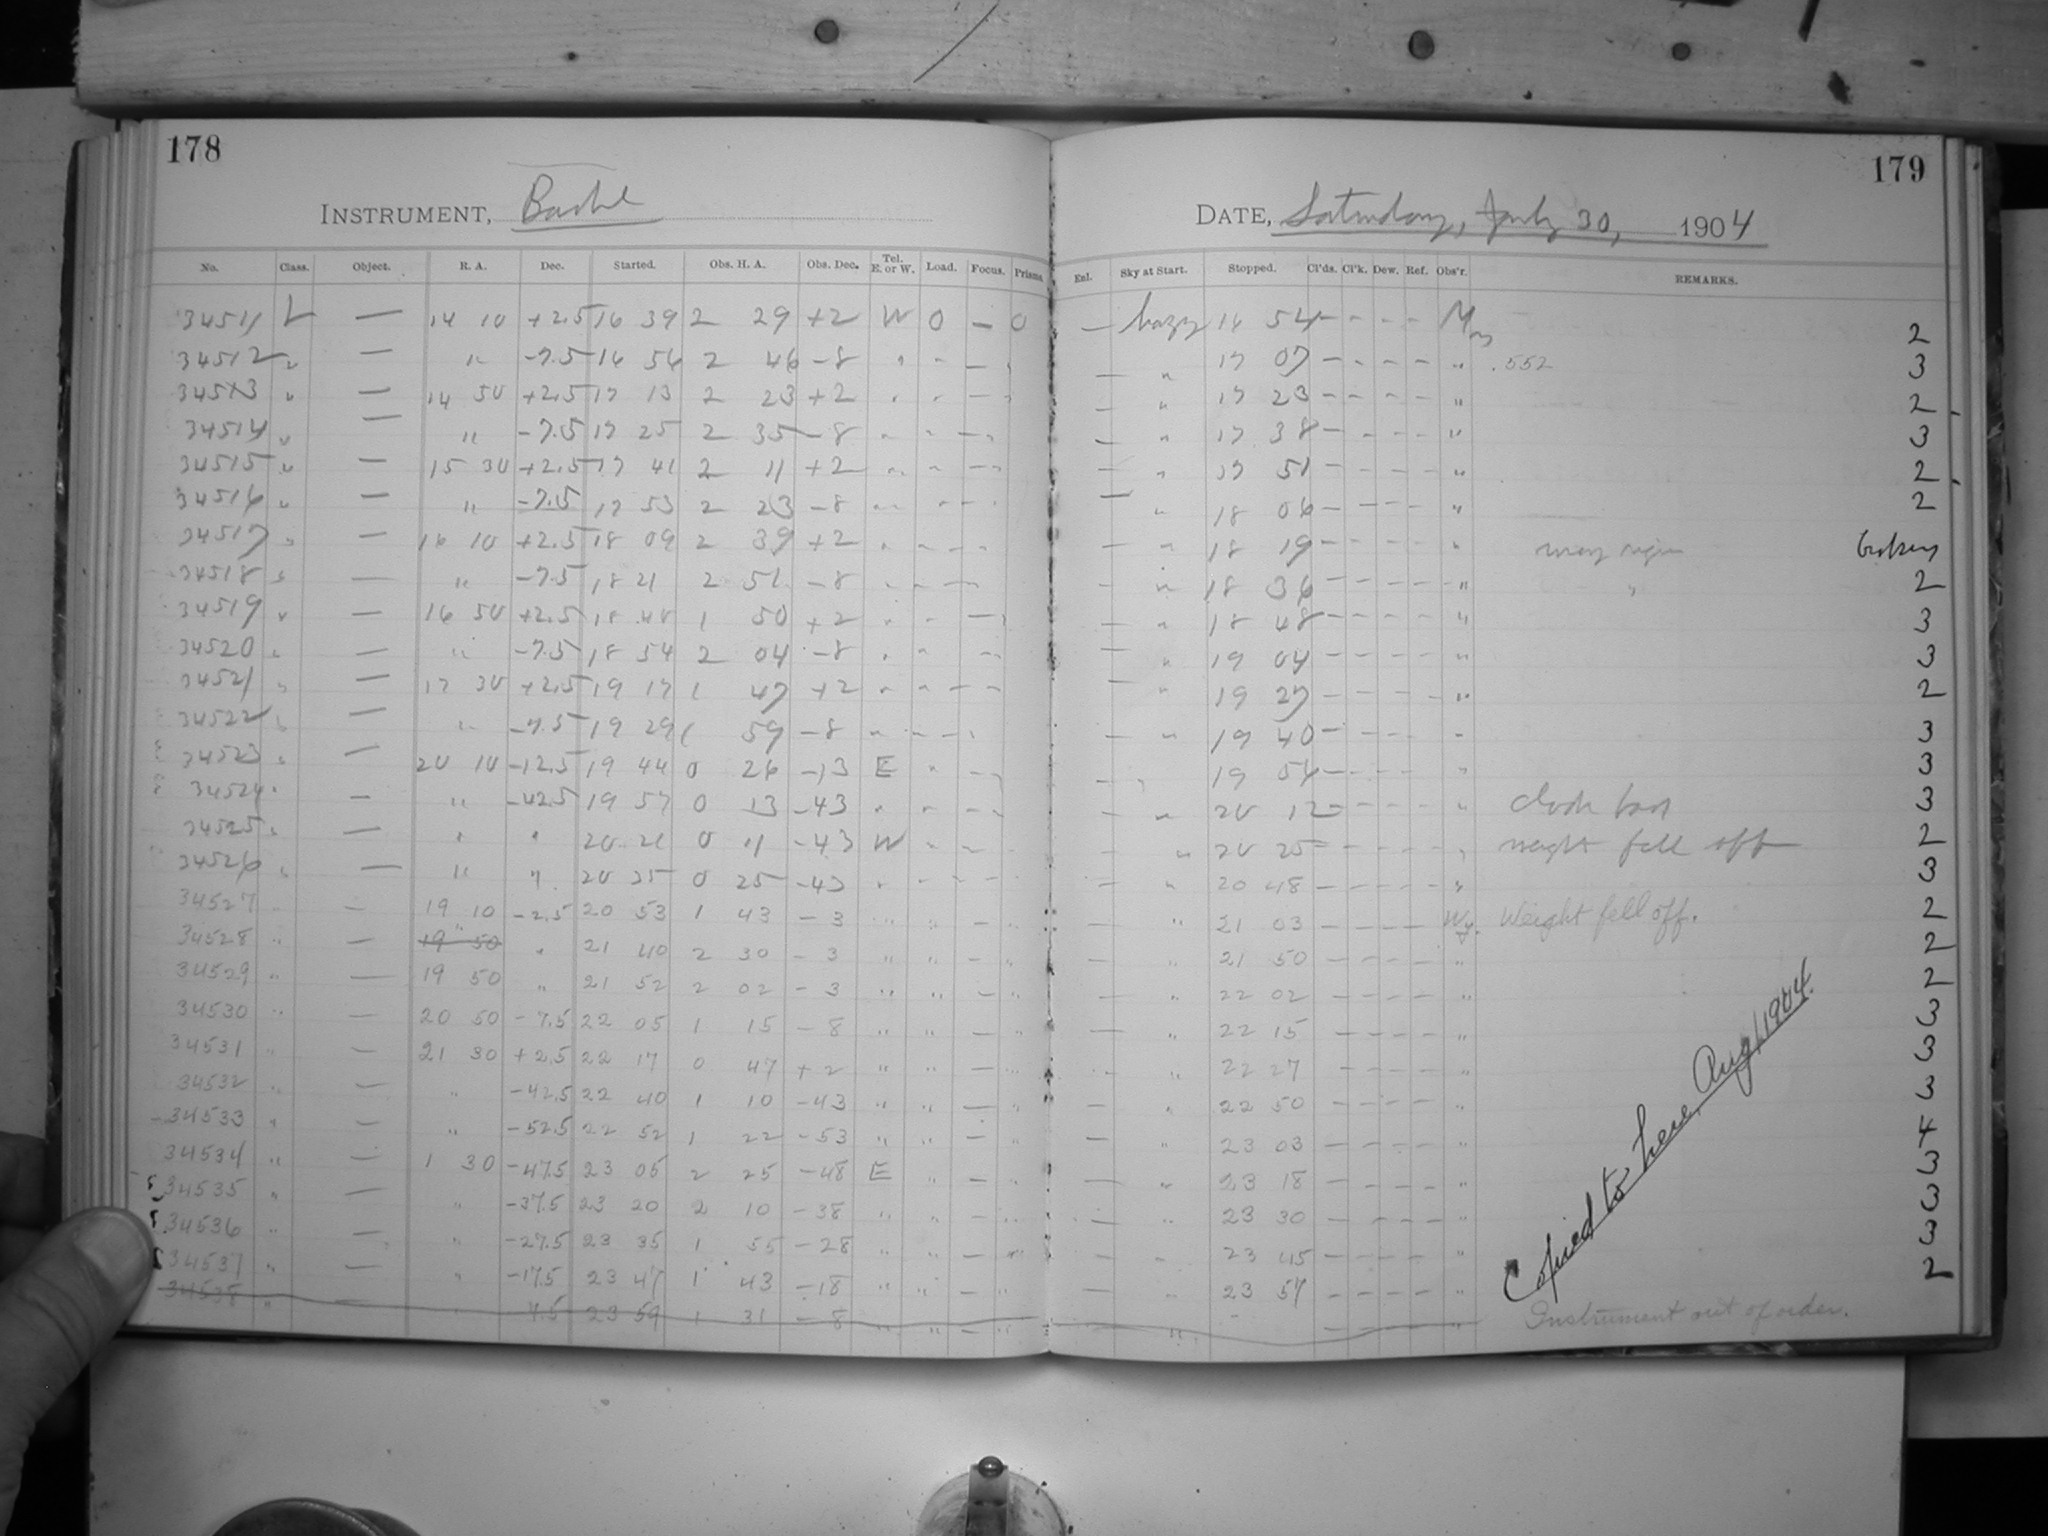 178
179
INSTRUMENT, Bache
DATE, Saturday, July 30, 1904
No. Class. Object. R. A. Dec. Started. Obs. H. A. Obs. Dec. Tel. E. or W. Load. Focus. Prisms. Enl. Sky at Start. Stopped. Cl'ds. Cl'k. Dew. Ref. Obs'r. REMARKS.
34511 L — 14 10 +2.5 16 39 2 29 +2 W 0 — 0 — hazy 16 54 - - - - 2
34512 " — " -7.5 16 56 2 46 -8 " - — " — " 17 07 - - - - " .552 3
34513 " — 14 50 +2.5 17 13 2 23 +2 " " — " — " 17 23 - - - - " 2
34514 " — " -7.5 17 25 2 35 -8 " " — " — " 17 38 - - - - " 3
34515 " — 15 30 +2.5 17 41 2 11 +2 " " — " — " 17 51 - - - - " 2
34516 " — " -7.5 17 53 2 23 -8 " " — " — " 18 06 - - - - " 2
34517 " — 16 10 +2.5 18 09 2 39 +2 " " — " — " 18 19 - - - - " broken
34518 " — " -7.5 18 21 2 51 -8 " " — " — " 18 36 - - - - " " 2
34519 " — 16 50 +2.5 18 1 50 +2 " " — " — " 18 48 - - - - " 3
34520 " — " -7.5 18 54 2 04 -8 " " — " — " 19 04 - - - - " 3
34521 " — 17 30 +2.5 19 17 1 47 +2 " " — " — " 19 27 - - - - " 2
34522 " — " -7.5 19 29 1 59 -8 " " — " — " 19 40 - - - - " 3
34523 " — 20 10 -12.5 19 44 0 26 -13 E " — " — " 19 54 - - - - " 3
34524 " — " -42.5 19 57 0 13 -43 " " — " — " 20 12 - - - - " 3
34525 " — " " 20 21 0 11 -43 W " — " — " 20 25 - - - - " weight fell off 2
34526 " — " " 20 35 0 25 -43 " " — " — " 20 48 - - - - " 3
34527 " — 19 10 -2.5 20 53 1 43 -3 " " — " — " 21 03 - - - - Wy. Weight fell off. 2
34528 " — 19 50 " " 21 40 2 30 -3 " " — " — " 21 50 - - - - " 2
34529 " — 19 50 " 21 52 2 02 -3 " " — " — " 22 02 - - - - " 2
34530 " — 20 50 -7.5 22 05 1 15 -8 " " — " — " 22 15 - - - - " 3
34531 " — 21 30 +2.5 22 17 0 47 +2 " " — " — " 22 27 - - - - " 3
34532 " — " -42.5 22 40 1 10 -43 " " — " — " 22 50 - - - - " 3
34533 " — " -52.5 22 52 1 22 -53 " " — " — " 23 03 - - - - " 4
34534 " — 1 30 -47.5 23 05 2 25 -48 E " — " — " 23 18 - - - - " 3
34535 " — " -37.5 23 20 2 10 -38 " " — " — " 23 30 - - - - " 3
34536 " — " -27.5 23 35 1 55 -28 " " — " — " 23 45 - - - - " 3
34537 " — " -17.5 23 47 1 43 -18 " " — " — " 23 57 - - - - " 2
34538 " — " 7.5 23 59 1 31 -8 " " — " — " - - - - - " Instrument out of order.
Copied to here, Aug 1 1904.